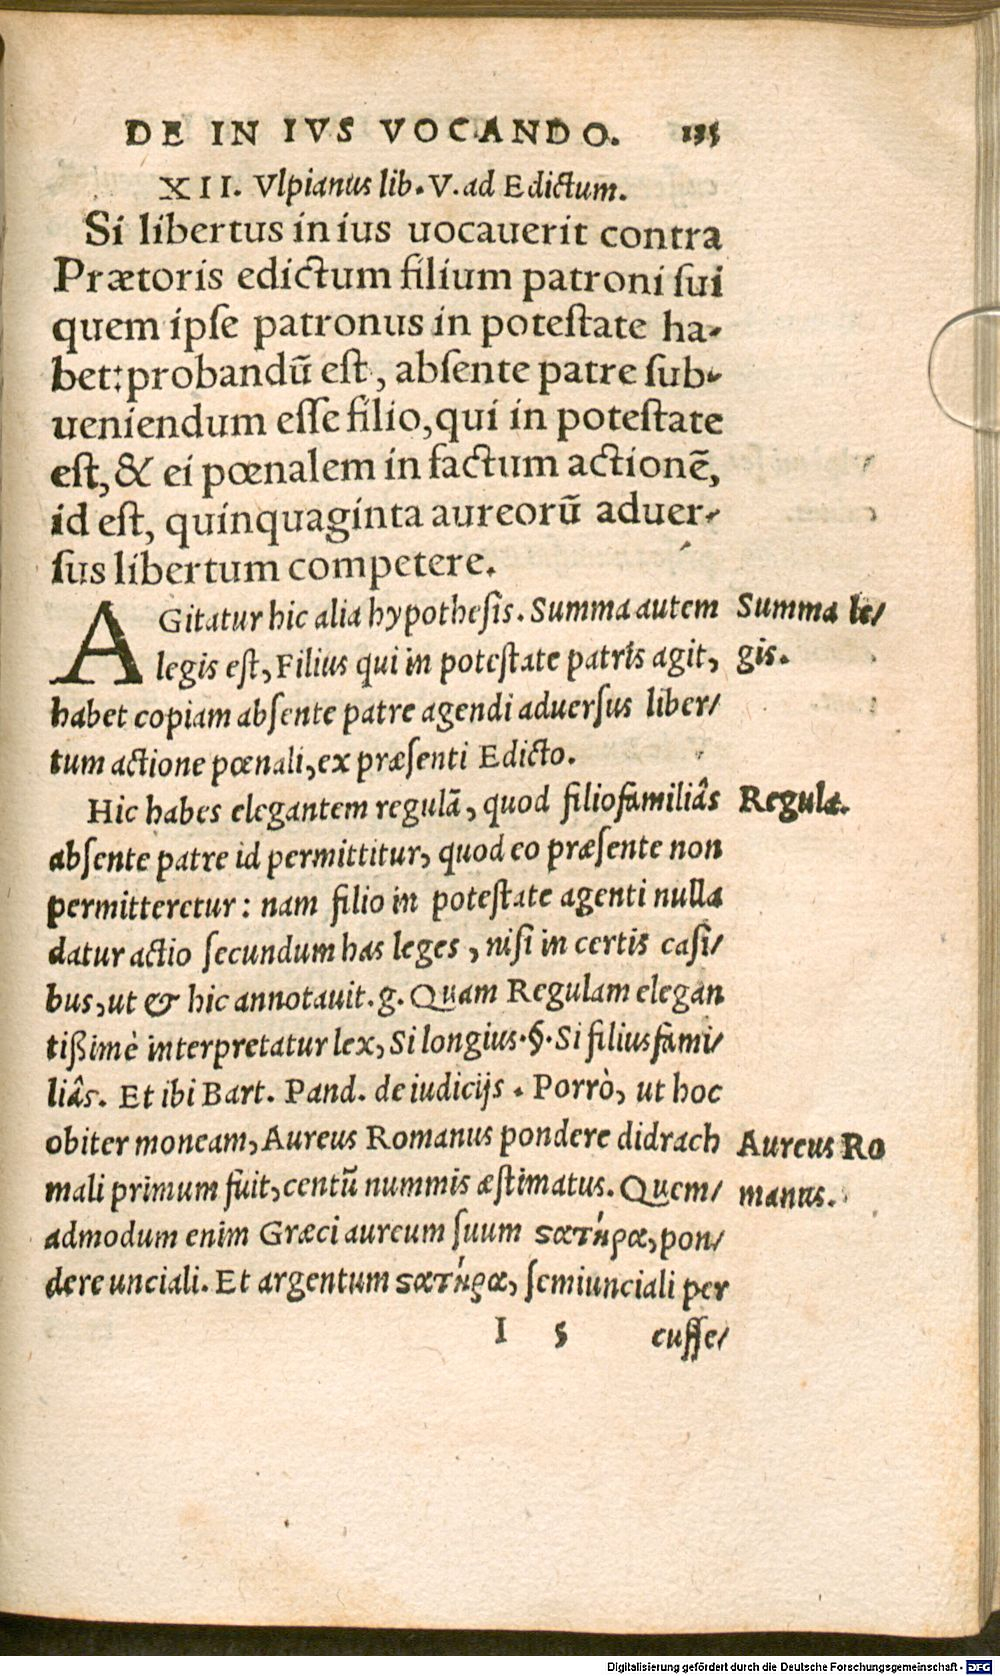 DE IN IVS VOCANDO. 135
XII. Vlpianus lib. V. ad Edictum.
Si libertus in ius uocauerit contra
Prætoris edictum filium patroni ſui
quem ipſe patronus in poteſtate ha-
bet: probandū eſt, abſente patre ſub-
ueniendum eſſe filio, qui in poteſtate
eſt, & ei pœnalem in factum actionē,
id eſt, quinquaginta aureorū aduer-
ſus libertum competere.
AGitatur hic alia hypotheſis. Summa autem
Summa le/
legis eſt, Filius qui in poteſtate patris agit,
gis.
habet copiam abſente patre agendi aduerſus liber/
tum actione pœnali, ex præſenti Edicto.
Hic habes elegantem regulā, quod filiofamiliâs
Regula.
abſente patre id permittitur, quod eo præſente non
permitteretur: nam filio in poteſtate agenti nulla
datur actio ſecundum has leges, niſi in certis caſi/
bus, ut & hic annotauit. g. Quam Regulam elegan
tißimè interpretatur lex, Si longius. §. Si filiusfami/
liâs. Et ibi Bart. Pand. de iudicijs. Porrò, ut hoc
obiter moneam, Aureus Romanus pondere didrach
Aureus Ro
mali primum fuit, centū nummis æſtimatus. Quem/
manus.
admodum enim Græci aureum ſuum ϛατήρα, pon/
dere unciali. Et argentum ϛατήρα, ſemiunciali per
I 5 cuſſe/
Digitalisierung gefördert durch die Deutsche Forschungsgemeinschaft - DFG